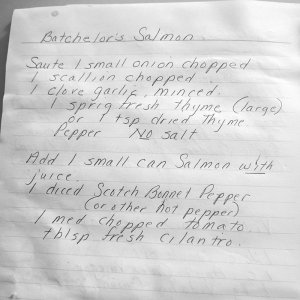 Batchelor's Salmon
Saute 1 small onion chopped
1 scallion chopped
1 clove garlic, minced.
1 sprig fresh thyme (large)
or 1 tsp dried thyme
Pepper No salt
Add 1 small can Salmon with
juice.
1 diced Scotch Bonnet Pepper
(or other hot pepper)
1 med. chopped tomato
tblsp fresh cilantro.